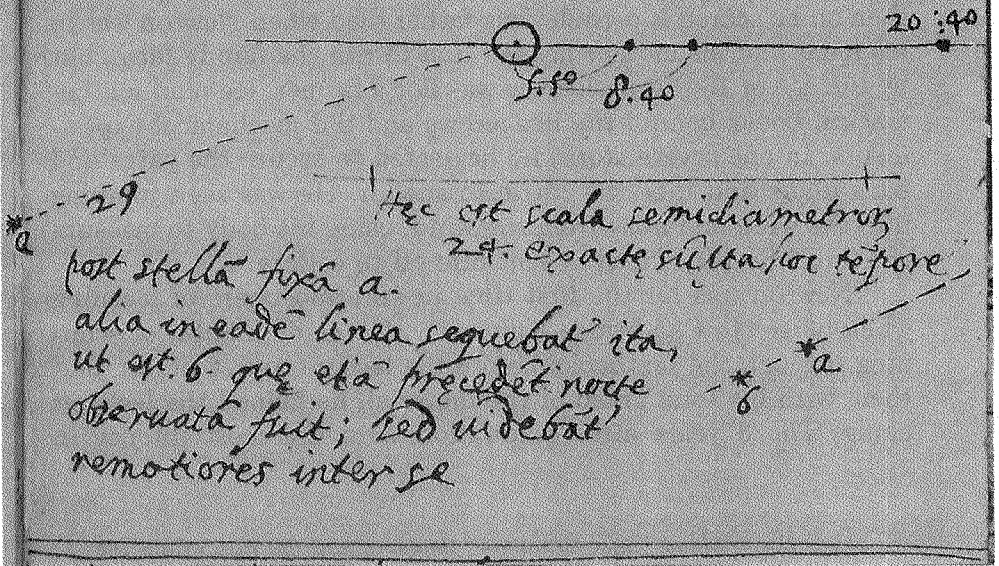 20 : 40
5.50 8.40
29
*a
Hęc est scala semidiametror
24. exactę sūpta hoc tēpore
post stellā fixā a.
alia in eadē linea sequebat ita,
ut est. b. quę etiā pręcedēt nocte
obseruata fuit; sed uidebāt
remotiores inter se
*a
*b